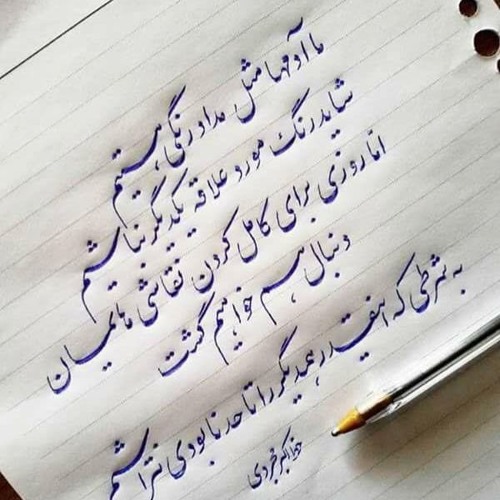 ما آدمها مثل مدادرنگی هستیم
شاید رنگ مورد علاقه یکدیگر نباشیم
اما روزی برای کامل کردن نقاشی هایمان
دنبال هم خواهیم گشت
به شرطی که اینقدر همدیگر را تا حد نابودی نتراشیم